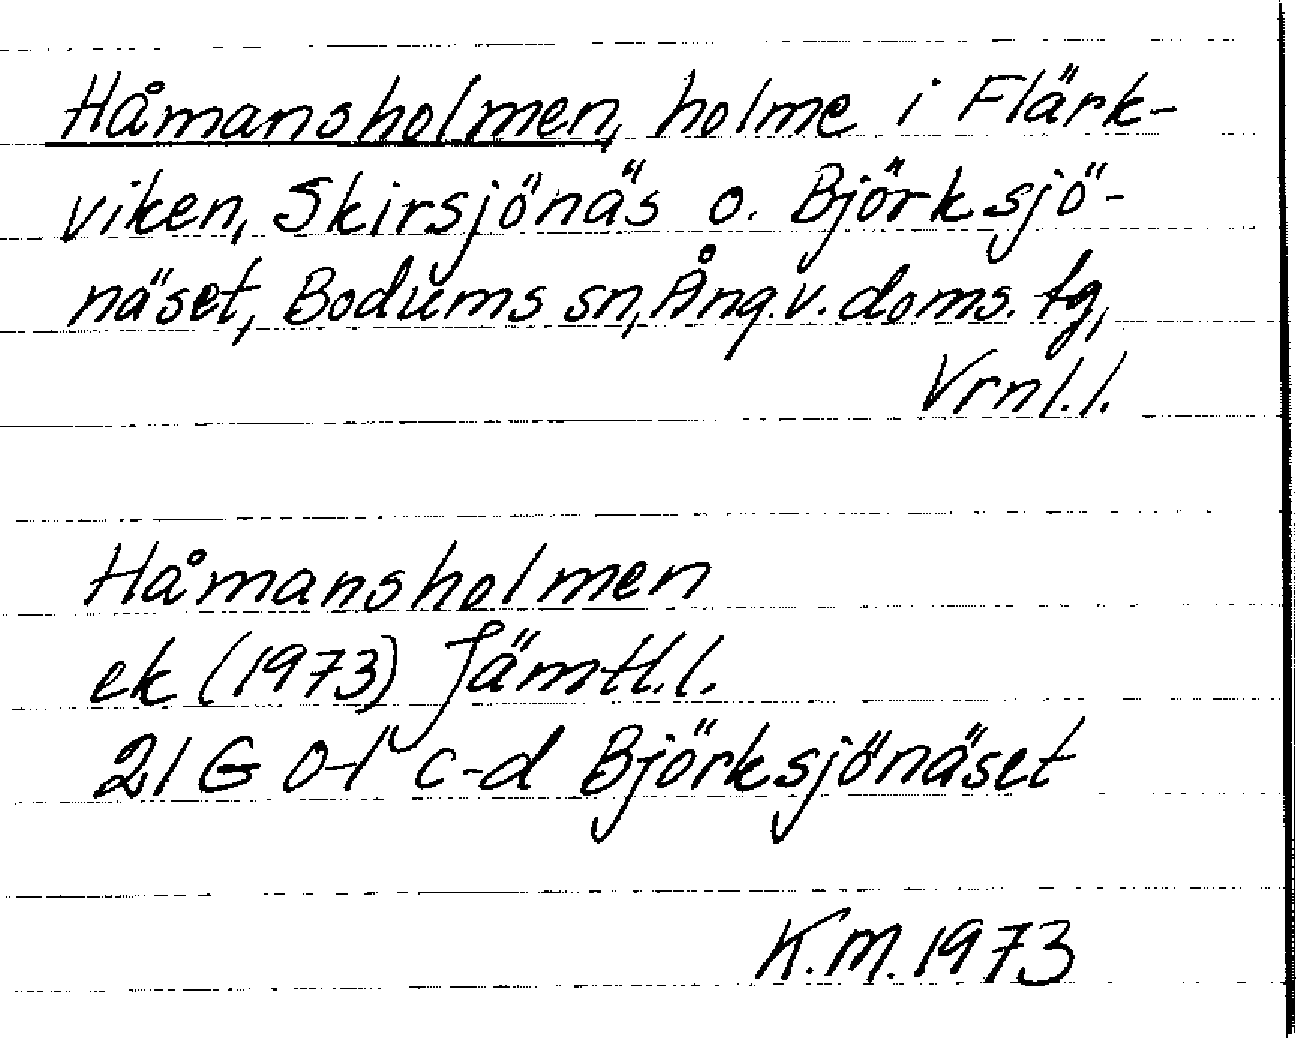 Håmansholmen, holme i Flärk-
viken, Skirsjönäs o. Björksjö-
näset, Bodums sn, Ång.v. doms. tg,
Vrnl.l.
Håmansholmen
ek (1973) Jämtl.l.
21 G 0-1 c-d Björksjönäset
K.M. 1973